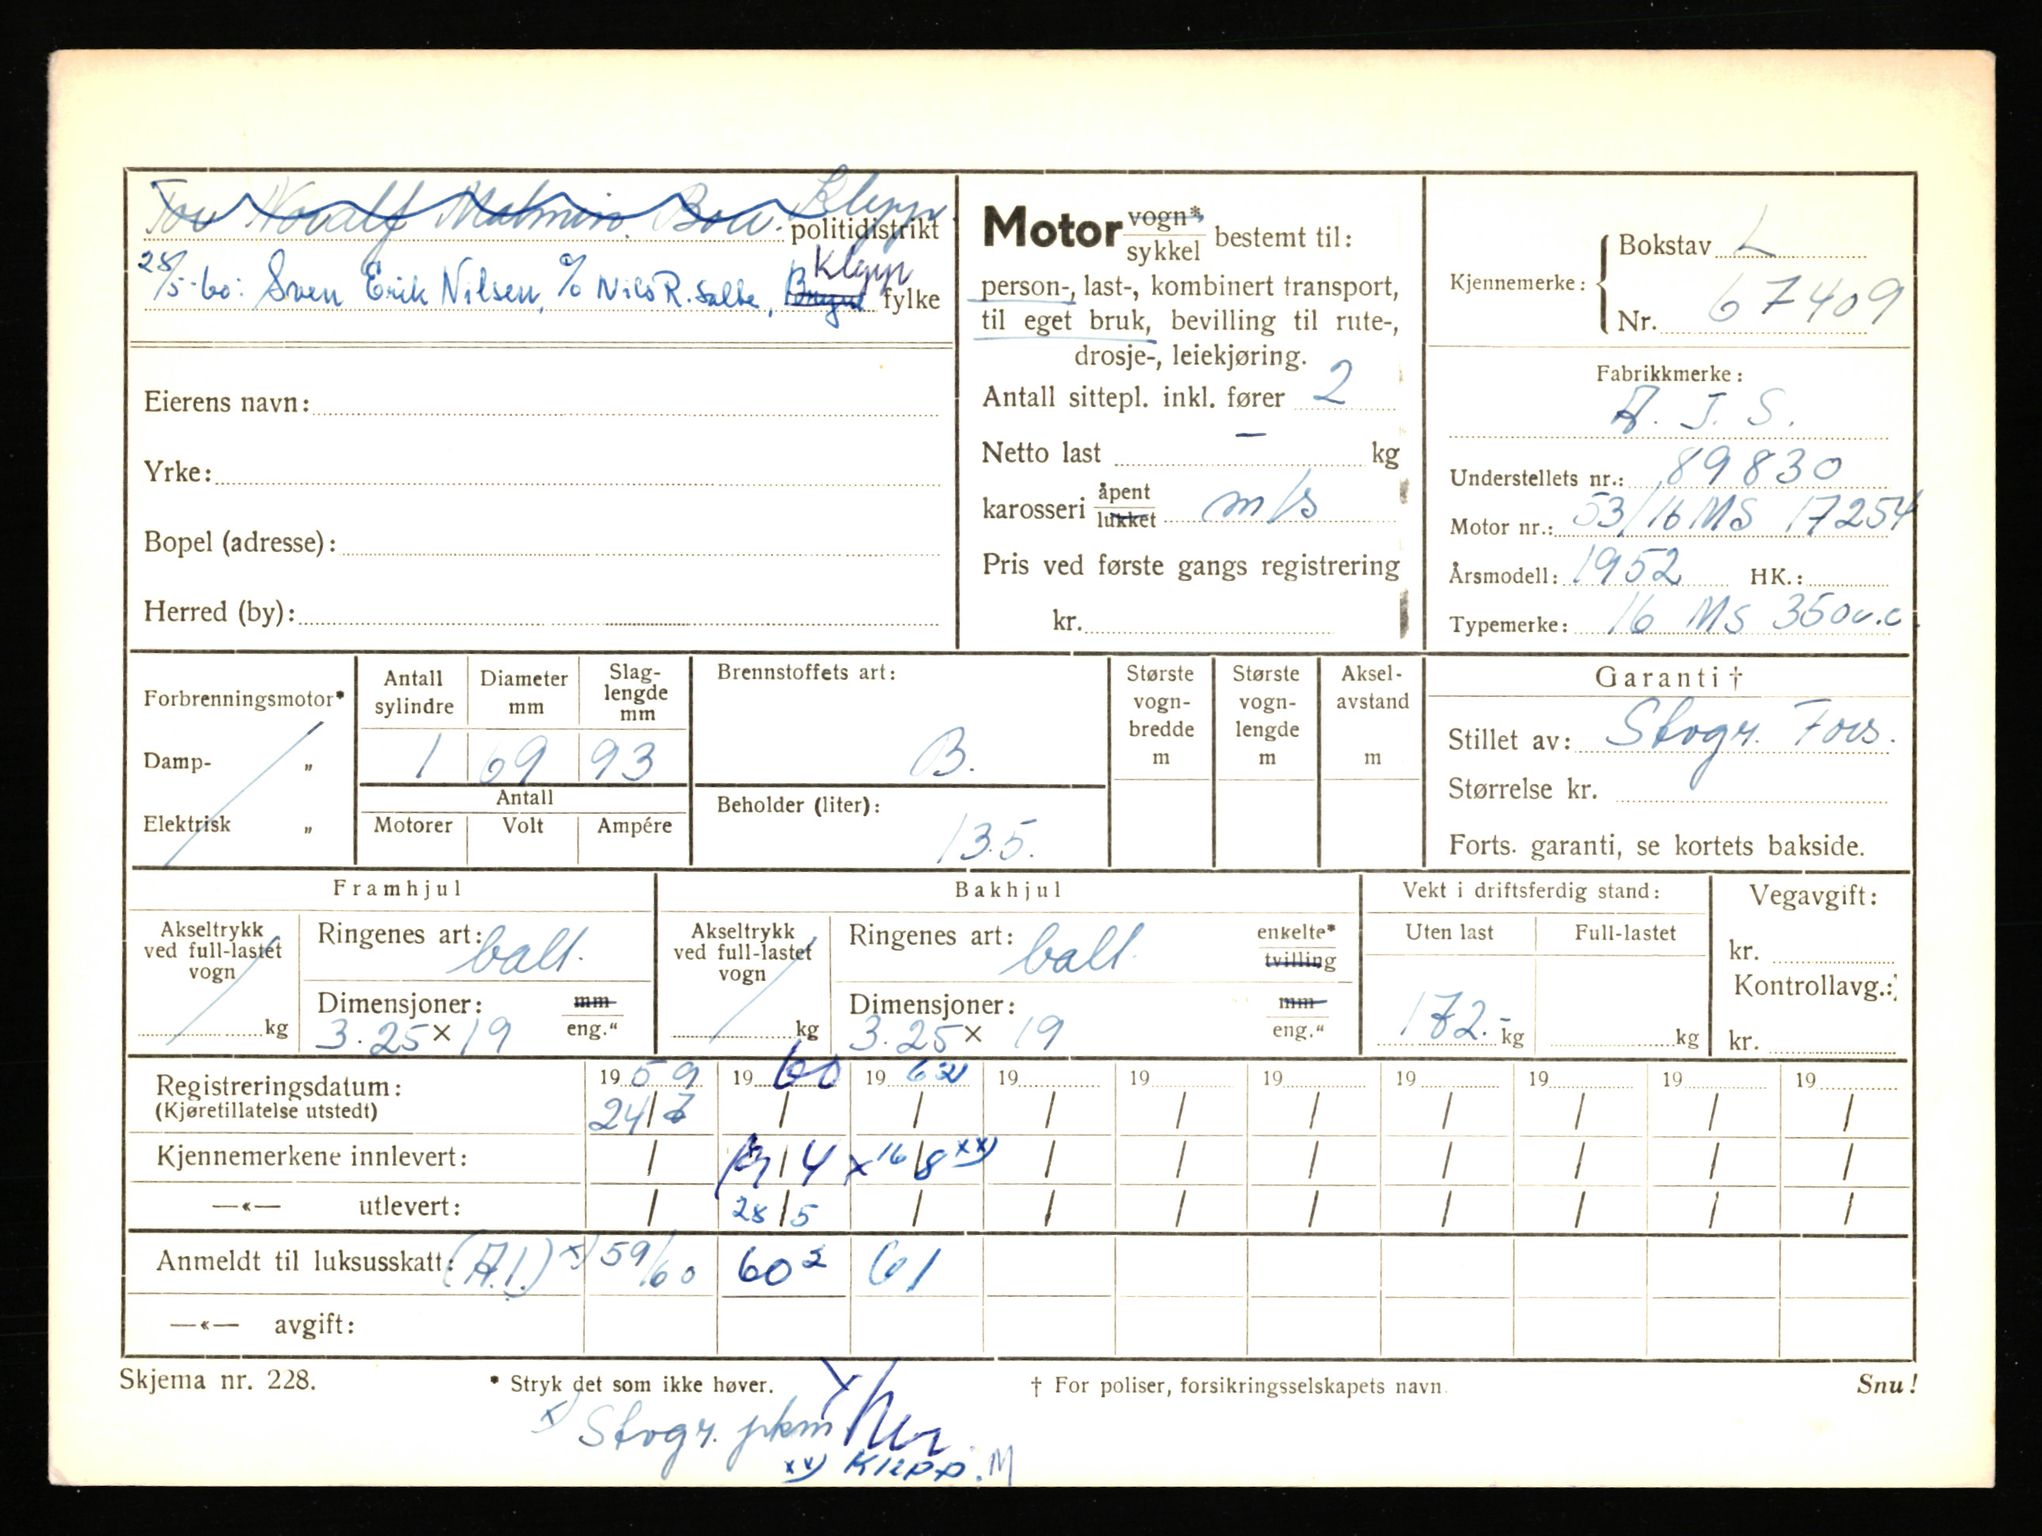 Tor Noralf Malmin. Bore. Klepp politidistrikt
28/5-60: Sven Erik Nilsen, c/o Nils R. Salte, Bryne Klepp fylke
Eierens navn:
Yrke:
Bopel (adresse):
Herred (by):
Motor vogn* sykkel bestemt til:
person-, last-, kombinert transport,
til eget bruk, bevilling til rute-,
drosje-, leiekjøring.
Antall sittepl. inkl. fører 2
Netto last – kg
karosseri åpent lukket m/s
Pris ved første gangs registrering
kr.
Kjennemerke: Bokstav L
Nr. 67409
Fabrikkmerke:
A. J. S.
Understellets nr.: 89830
Motor nr.: 53/16 MS 17254
Årsmodell: 1952 HK.:
Typemerke: 16 MS 350 c.c.
Forbrenningsmotor*
Damp- „
Elektrisk „
Antall sylindre Diameter mm Slag-lengde mm
1 69 93
Antall
Motorer Volt Ampére
Brennstoffets art:
B.
Beholder (liter):
13.5.
Største vogn-bredde m
Største vogn-lengde m
Aksel-avstand m
Garanti †
Stillet av: Stvgr. Fors.
Størrelse kr.
Forts. garanti, se kortets bakside.
Framhjul
Akseltrykk ved full-lastet vogn kg
Ringenes art: ball.
Dimensjoner: mm eng."
3.25 x 19
Bakhjul
Akseltrykk ved full-lastet vogn kg
Ringenes art: ball. enkelte* tvilling
Dimensjoner: mm eng."
3.25 x 19
Vekt i driftsferdig stand:
Uten last Full-lastet
172.- kg kg
Vegavgift:
kr.
Kontrollavg.:
kr.
Registreringsdatum: 19 59 19 60 19 62 19 19 19 19 19 19 19
(Kjøretillatelse utstedt) 24/7 / / / / / / / / /
Kjennemerkene innlevert: / /4 x 16/8 xx) / / / / / / /
—«— utlevert: / 28/5 / / / / / / / /
Anmeldt til luksusskatt: (A.I.) x) 59/60 60 2 61
—«— avgift:
Skjema nr. 228. * Stryk det som ikke høver. † For poliser, forsikringsselskapets navn. Snu!
x) Stvgr. pkm
xx) Klepp. M